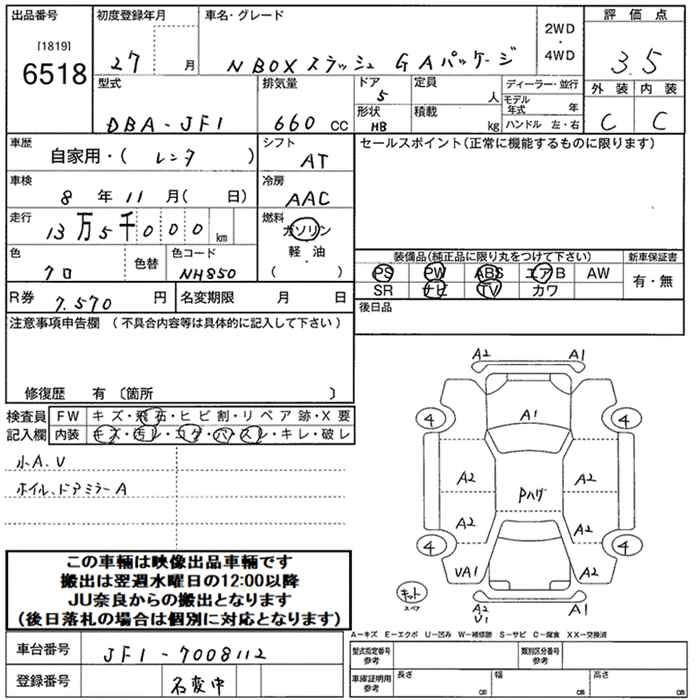 出品番号
[1819]
6518
初度登録年月
27 月
車名・グレード
N BOX スラッシュ G Aパッケージ
2WD
・
4WD
評価点
3.5
外装 内装
C C
型式
DBA-JF1
排気量
660 cc
ドア
5
形状
HB
定員
人
積載
kg
ディーラー・並行
モデル年式 年
ハンドル 左・右
車歴
自家用・( レンタ )
シフト
AT
セールスポイント(正常に機能するものに限ります)
車検
8 年 11 月( 日)
冷房
AAC
走行
13万5千000 km
燃料
ガソリン
軽・油
( ・ )
色
クロ
色替
色コード
NH850
装備品(純正品に限り丸をつけて下さい)
PS PW ABS エアB AW
SR ナビ TV カワ
新車保証書
有・無
R券
7.570 円
名変期限 月 日
後日品
注意事項申告欄 (不具合内容等は具体的に記入して下さい)
修復歴 有 〔箇所 〕
検査員
記入欄
FW キズ・飛石・ヒビ割・リペア跡・X要
内装 キズ・汚レ・コゲ・穴・スレ・キレ・破レ
小A.V
ホイル、ドアミラーA
この車輌は映像出品車輌です
搬出は翌週水曜日の12:00以降
JU奈良からの搬出となります
(後日落札の場合は個別に対応となります)
車台番号
JF1-7008112
登録番号
名変中
A2 A1
4 A1 4
A2 A2
Pハゲ
A2 A2
4 4
VA1 A2
キット
スペア
A2
V1
A1
A－キズ E－エクボ U－凹み W－補修跡 S－サビ C－腐食 XX－交換済
型式指定番号
参考
類別区分番号
参考
車庫証明用
参考
長さ cm
幅 cm
高さ cm